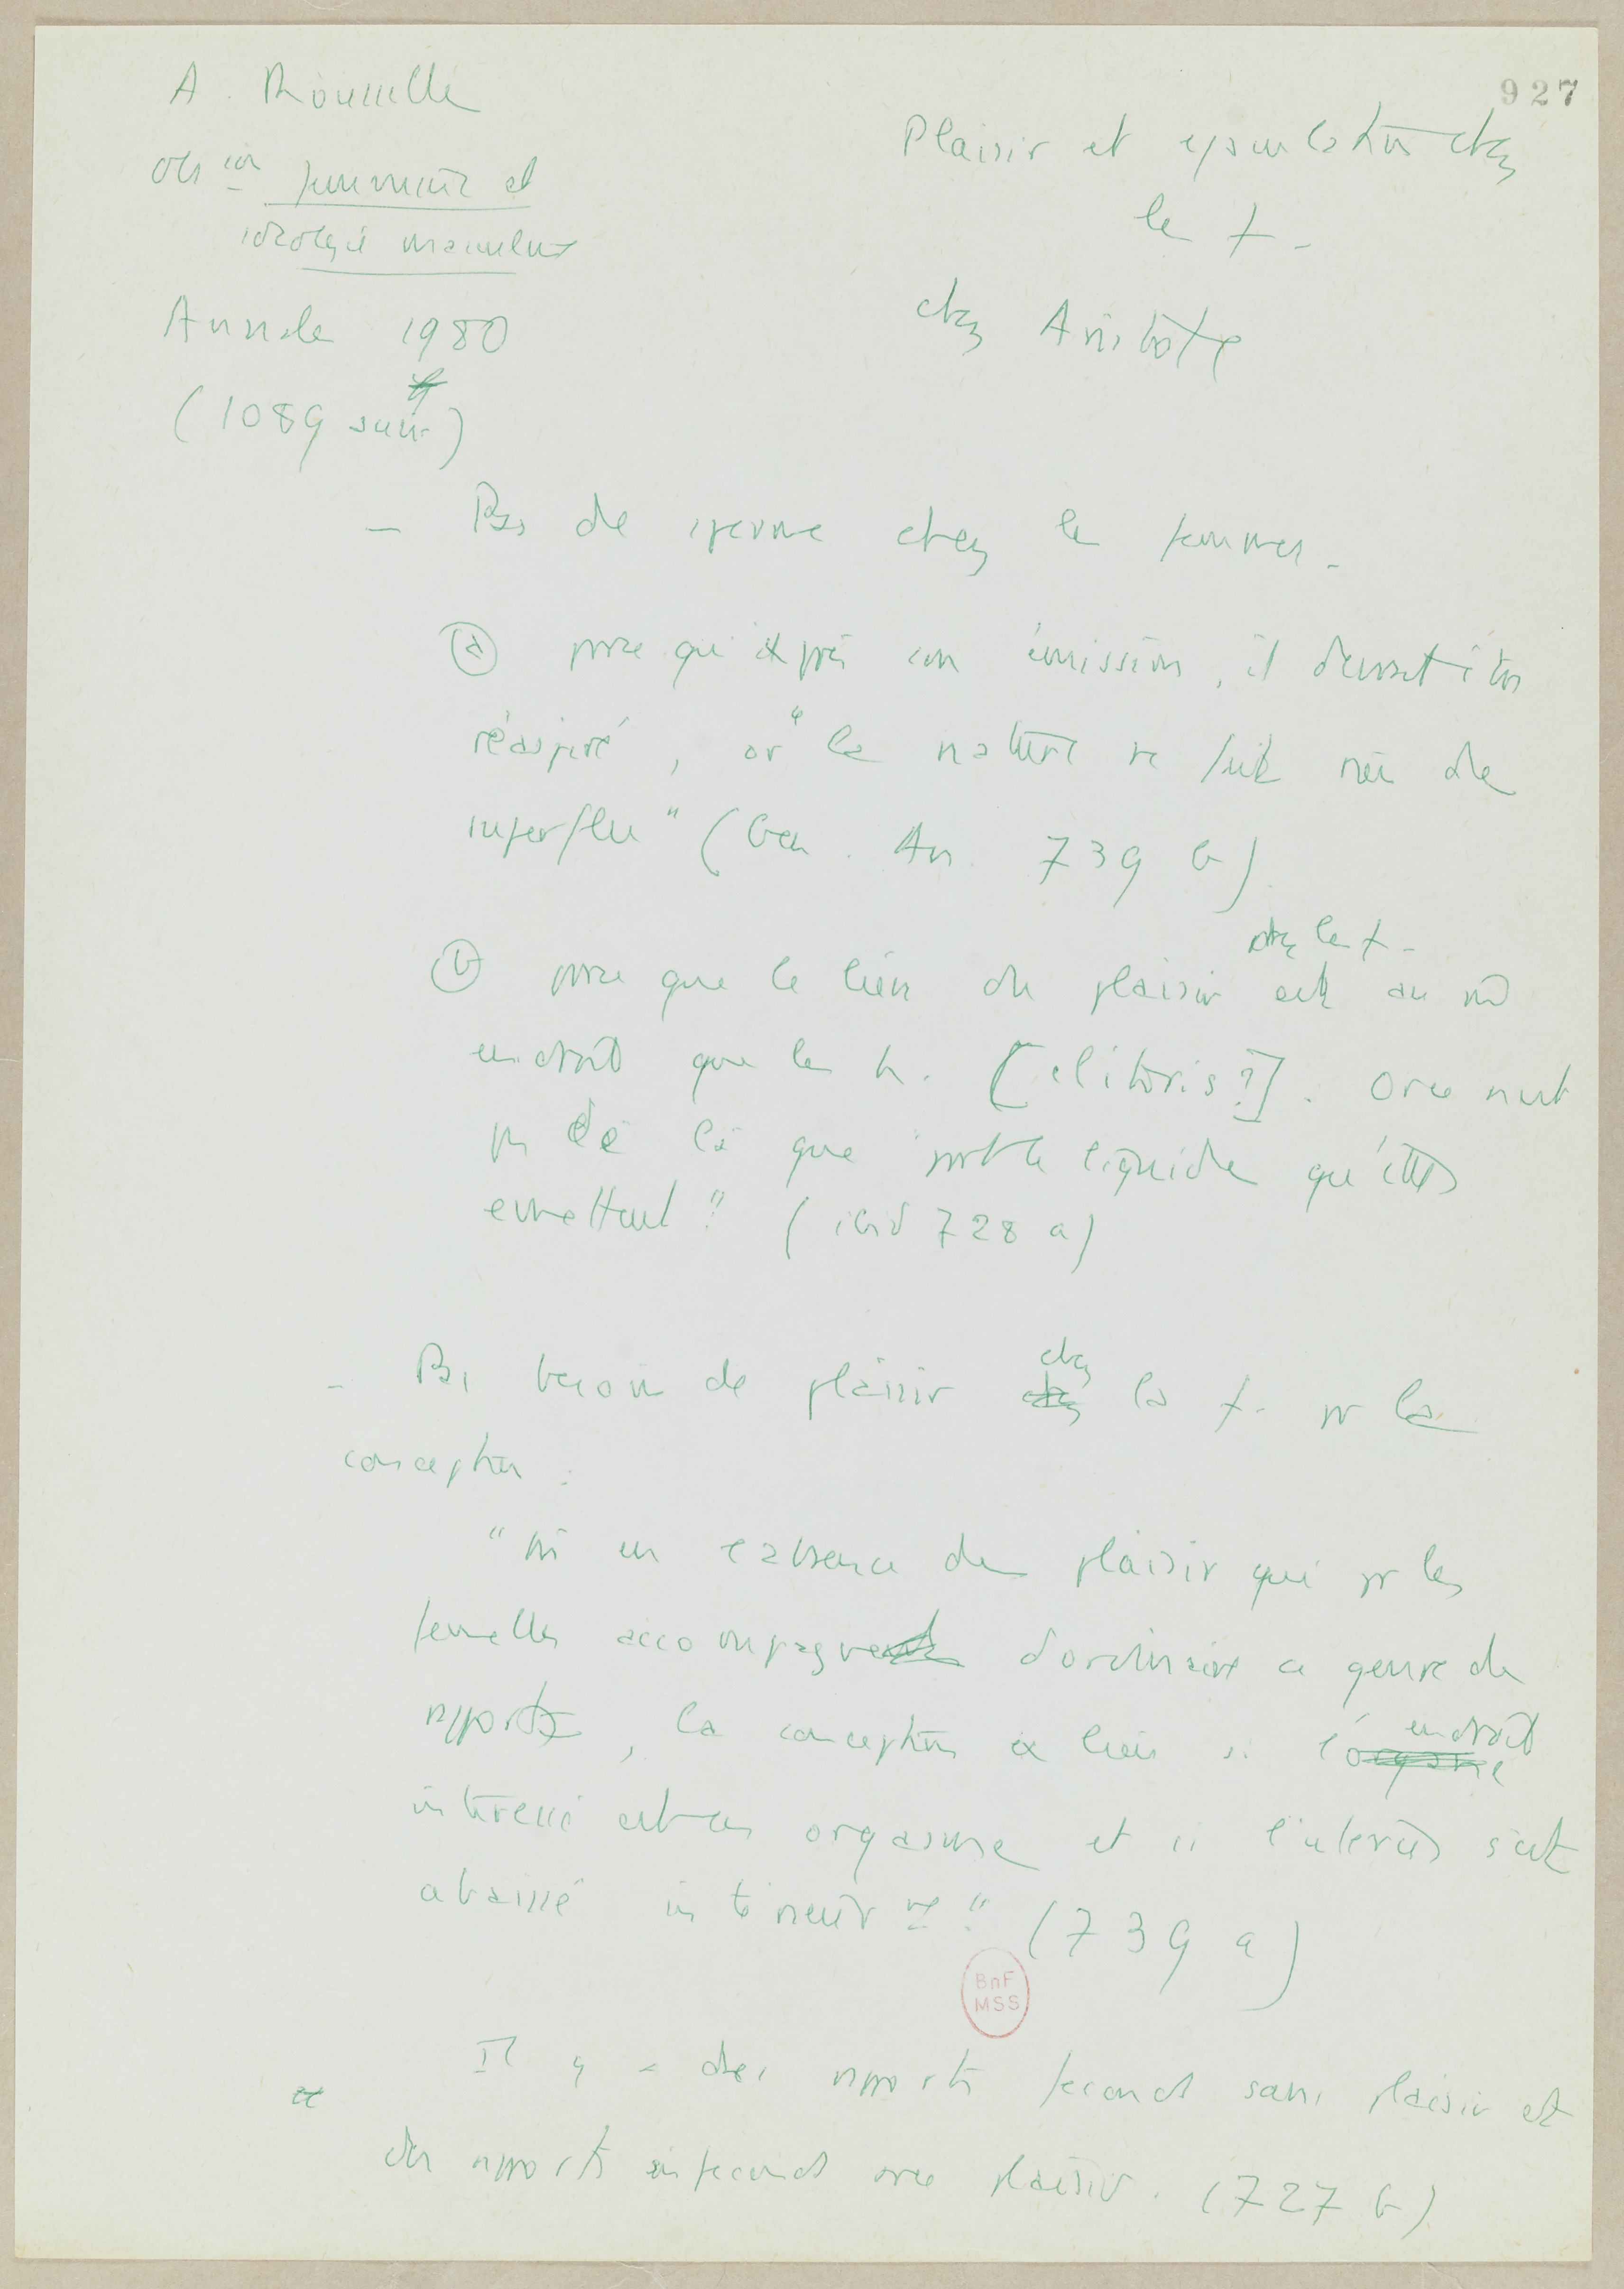 A. Rousselle
Obs ion féminine et
idéologie masculine
Annales 1980
(1089 suiv)
927
Plaisir et ejaculation chez
la f.
chez Aristote
– Pas de sperme chez les femmes.
(a) parce qu'après son émission, il devrait être
réaspiré, or "la nature ne fait rien de
superflu" (Gen. An. 739 b)
chez les f.
(b) parce que le lieu du plaisir est au m̂
endroit que les h. [clitoris ?]. Or ce n'est
pas de là que sort le liquide qu'elles
émettent" (ibid 728 a)
chez
– Pas besoin de plaisir la f. pr la
conception :
"Si en l'absence du plaisir qui pr les
femelles accompagne d'ordinaire ce genre de
rapports, la conception a lieu si l'
endroit
intéressé est en orgasme et si l'utérus s'est
abaissé intérieur nt" (739 a)
BnF
MSS
Il y a des rapports féconds sans plaisir et
des rapports inféconds avec plaisir. (727 b)